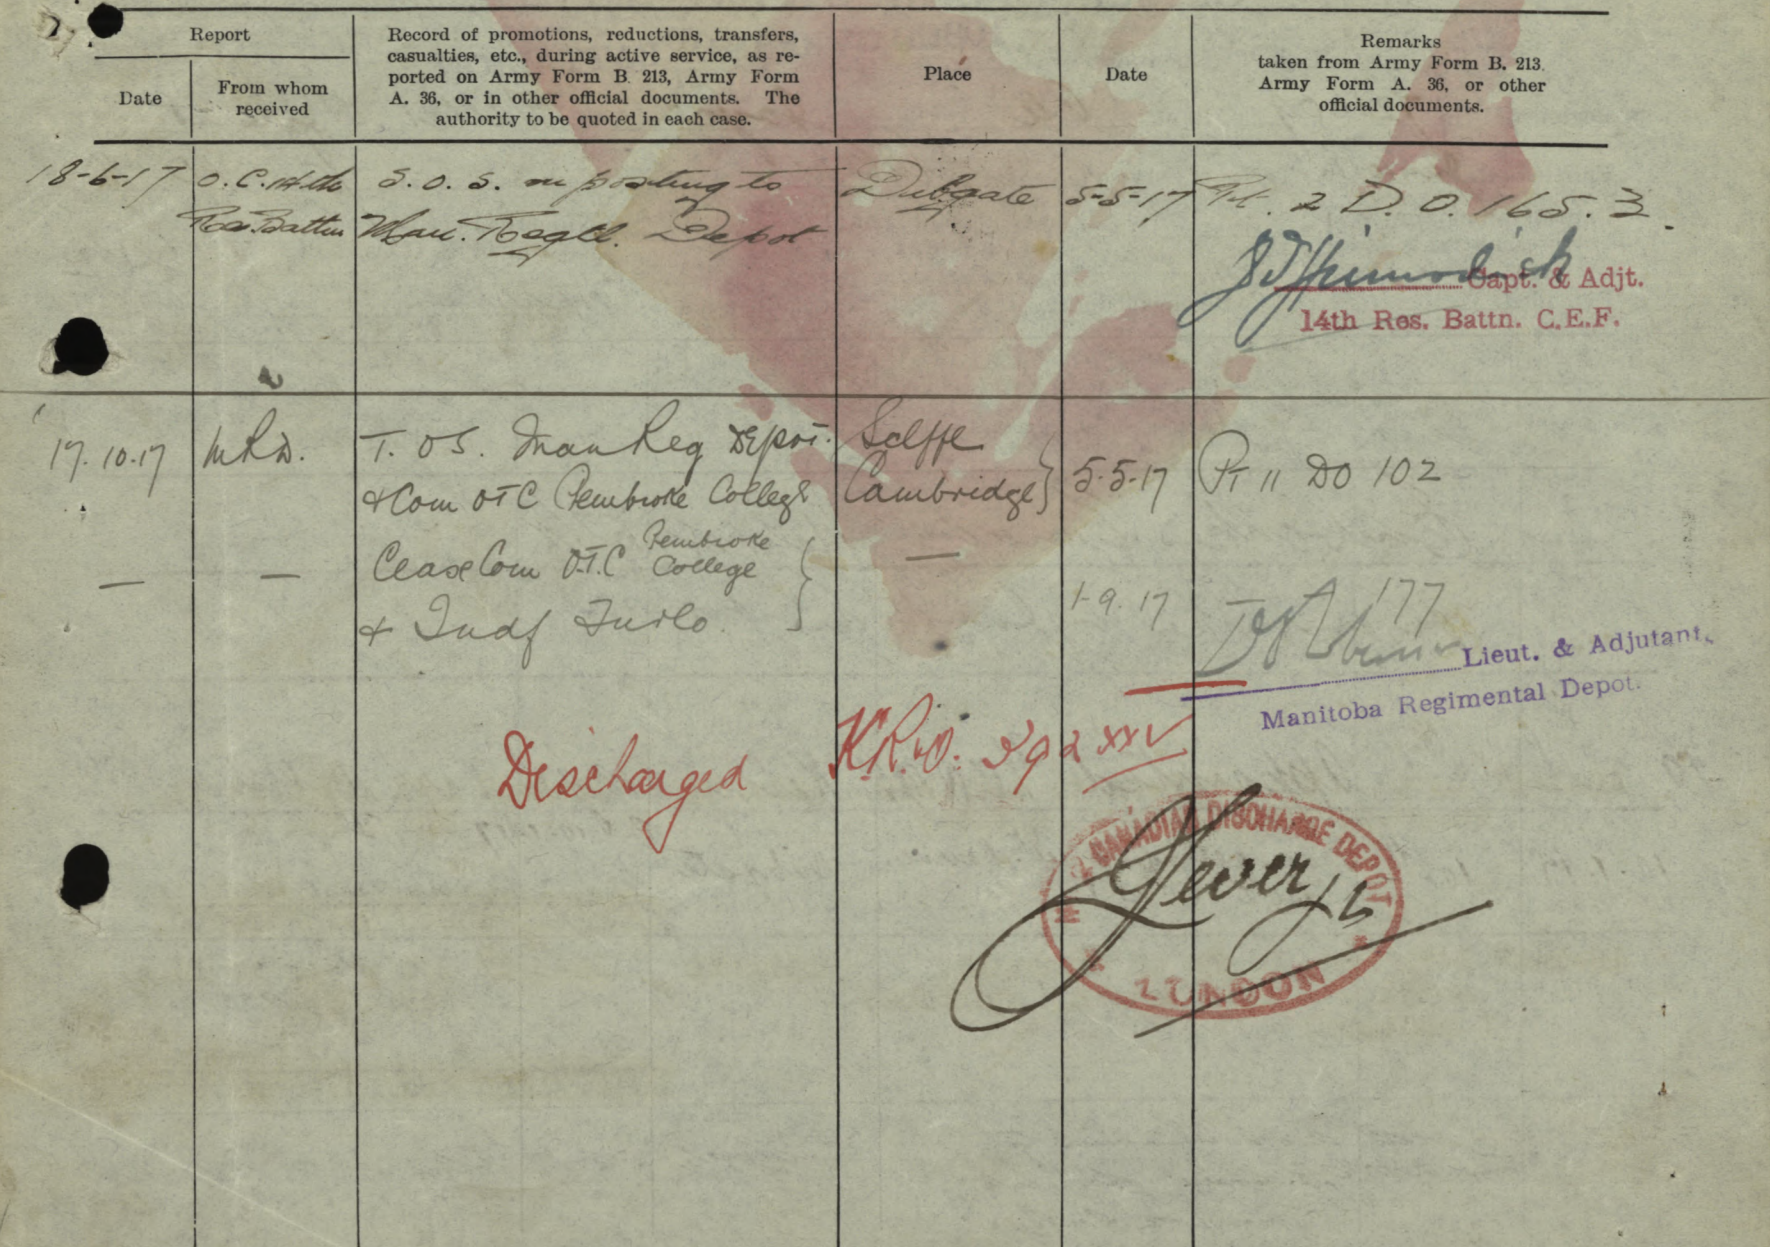 Report
Date
From whom
received
Record of promotions, reductions, transfers,
casualties, etc., during active service, as re-
ported on Army Form B. 213, Army Form
A. 36, or in other official documents. The
authority to be quoted in each case.
Place
Date
Remarks
taken from Army Form B. 213,
Army Form A. 36, or other
official documents.
18-6-17 O.C. 14th S.O.S. on posting to Dibgate 5-5-17 Pt. 2 D.O. 165.3
Res. Battn Man. Regtl. Depot
Capt. & Adjt.
14th Res. Battn. C.E.F.
17.10.17 MRD. T.OS. Man Reg Depot. 5.5.17 Pt 11 DO 102
& Com OTC Pembroke College Cambridge
— — Cease Com O.T.C Pembroke College —
& Indf Furlo. 1.9.17 177
Lieut. & Adjutant,
Manitoba Regimental Depot.
Discharged K.R.&O. 392 XXV
CANADIAN DISCHARGE DEPOT
LONDON